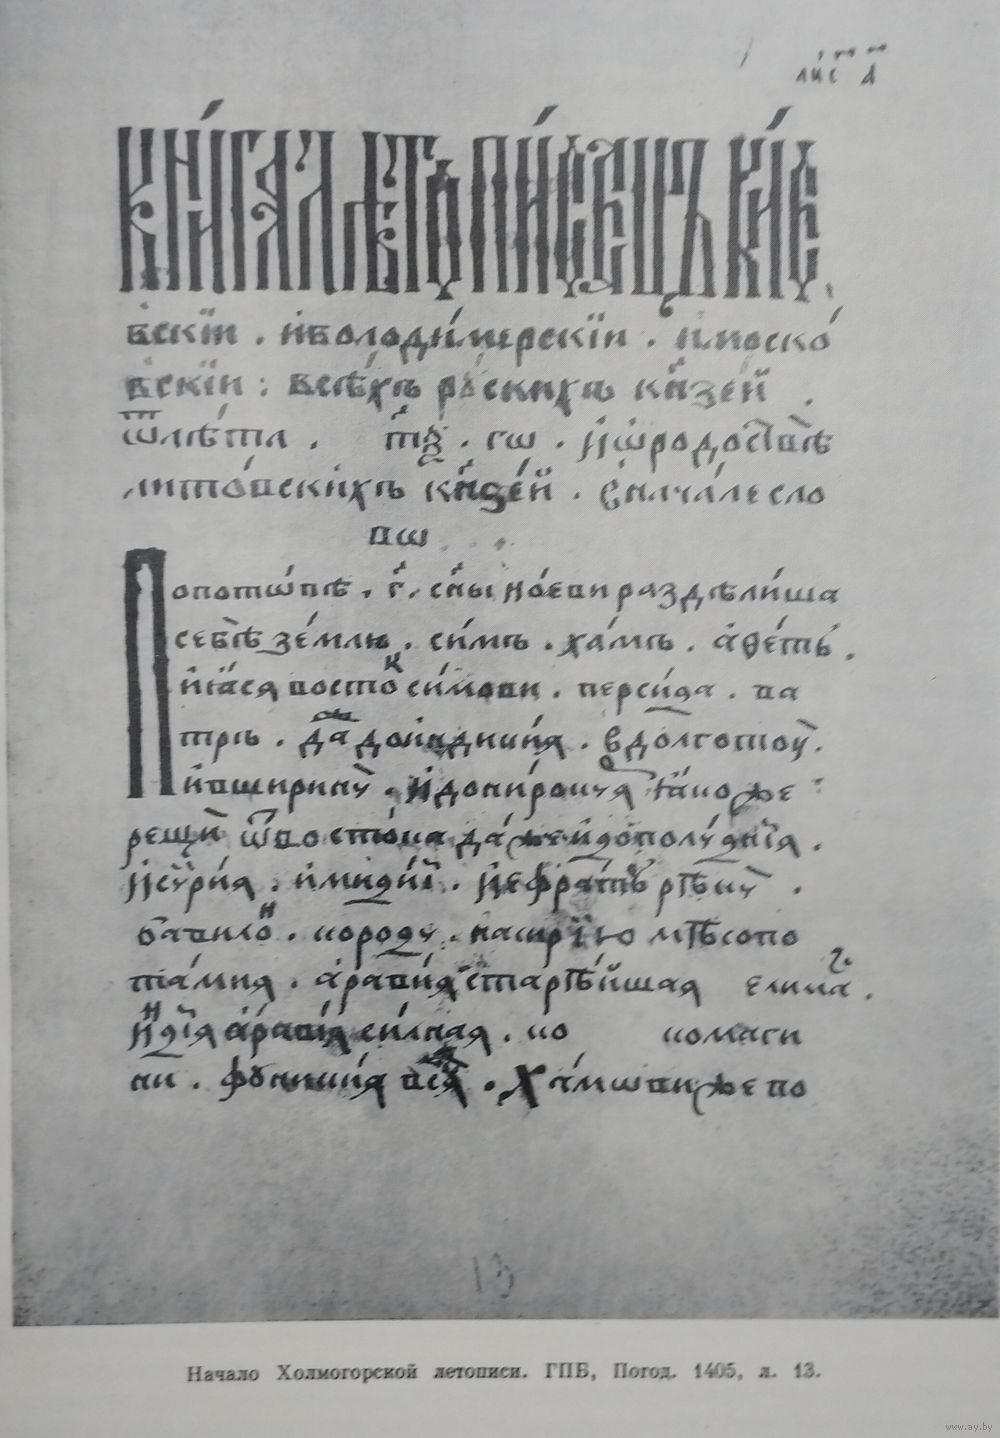 лис҇ а҃
КНИГА ЛѢТОПИСЕЦЪ КИЕ
вскїи . и володимерскїи . и моско
вскїи : всѣхъ рускихъ кн҃зеи .
ѿ лѣта . т҃ѯ . гѡ . и ѡ родоствѣ
литовскихъ кн҃зеи . в начале сло
вѡ
По потѡпѣ . г҃ . сн҃ы ноеви раздѣлиша
себѣ землю . симъ . хамъ . аѳетъ .
и ꙗся восток симови . персида . ва
тръ . да до индикия . в долготоу .
и в ширину . и до нирокуꙗ ꙗко же
рещи ѿ востока даже и до полуднїꙗ .
и сурия . и мидиꙗ . и ефратъ рѣку .
вавилон . корду . насирїю мѣсопо
тамия . аравиꙗ старѣишаꙗ елима .
индїꙗ аравиꙗ силнаꙗ . ко комаги
ни . фъникиꙗ всꙗ . Хамѡви же по
13
Начало Холмогорской летописи. ГПБ, Погод. 1405, л. 13.
www.ay.by